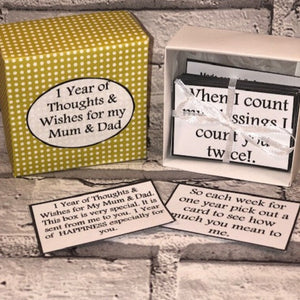 1 Year of
Thoughts &
Wishes for my
Mum & Dad
When I count
my blessings I
count you
twice!.
1 Year of Thoughts &
Wishes For My Mum & Dad.
This box is very special. It is
sent from me to you. 1 Year
of HAPPINESS especially for
you.
So each week for
one year pick out a
card to see how
much you mean to
me.